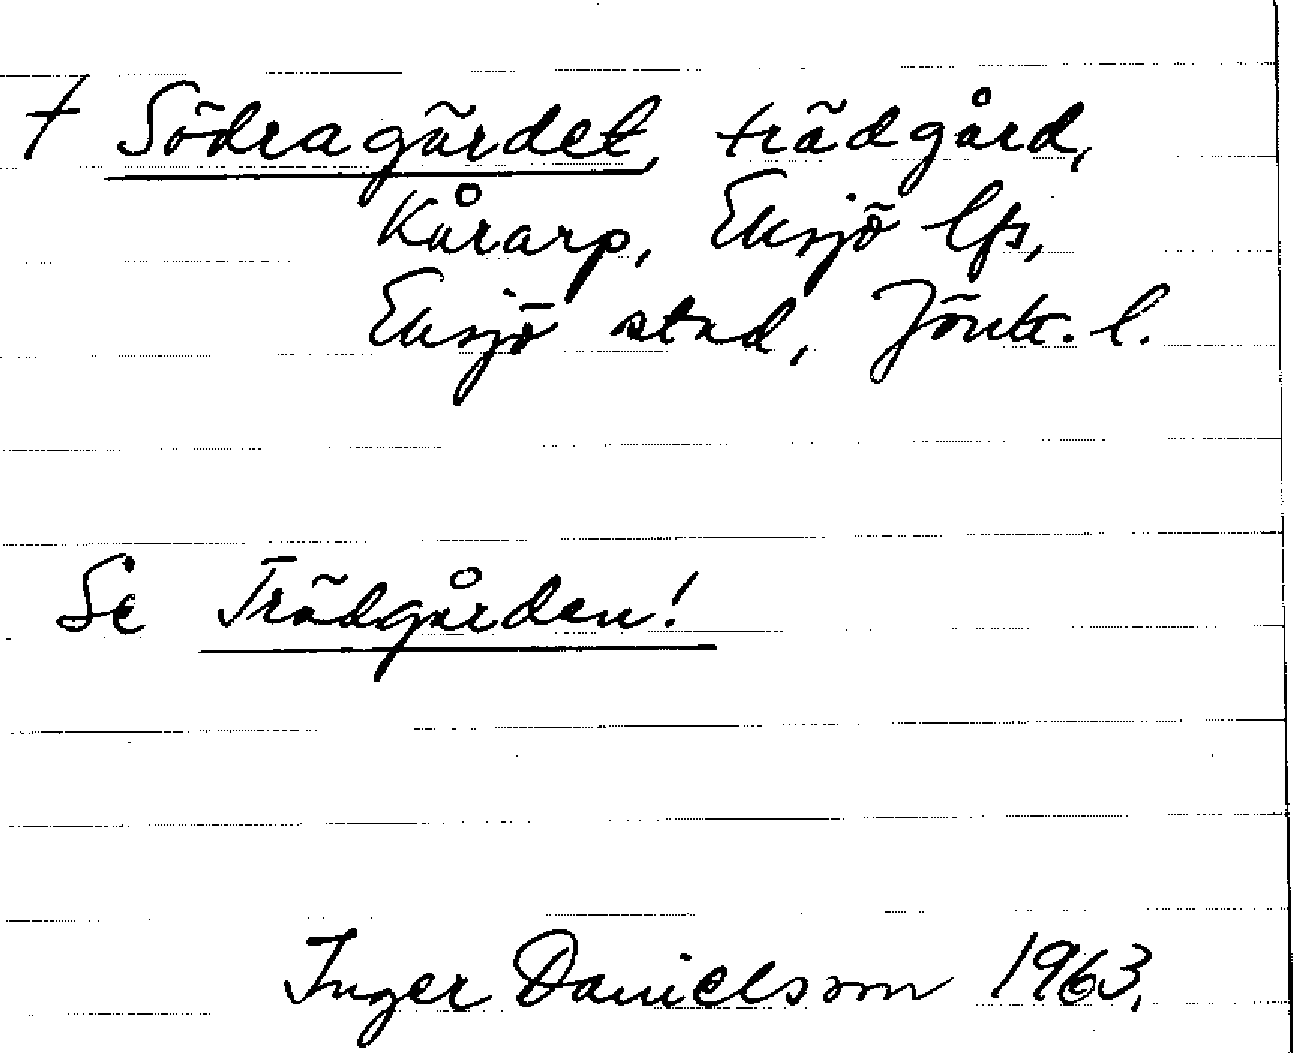 † Södragärdet, trädgård,
Kårarp, Eksjö lfs,
Eksjö stad, Jönk. l.
Se Trädgården!
Inger Danielsson 1963.